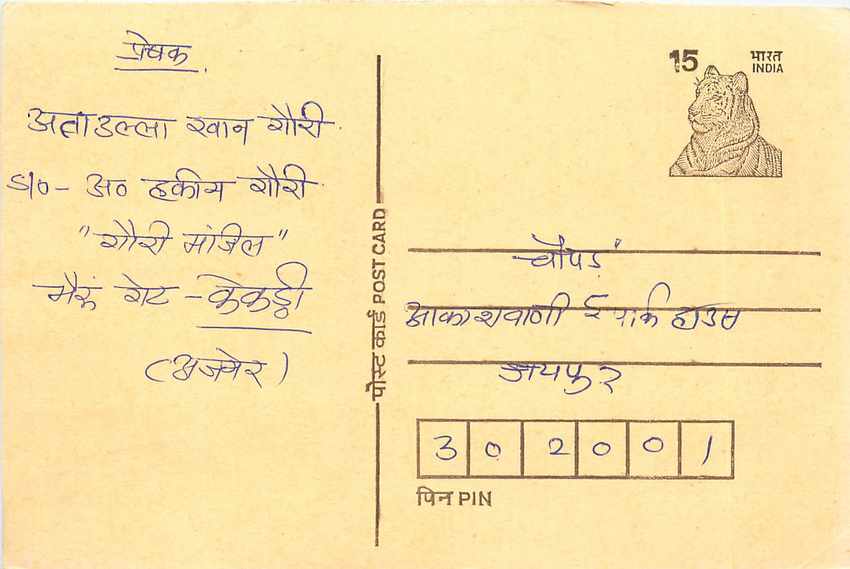 प्रेषक.
अताउल्ला खान गौरी.
S/o- अ० हकीम गौरी.
"गौरी मंजिल"
भैरूं गेट - केकड़ी
(अजमेर)
पोस्ट कार्ड POST CARD
15 भारत
INDIA
चौपड़
आकाशवाणी पार्क हाउस
जयपुर
302001
पिन PIN